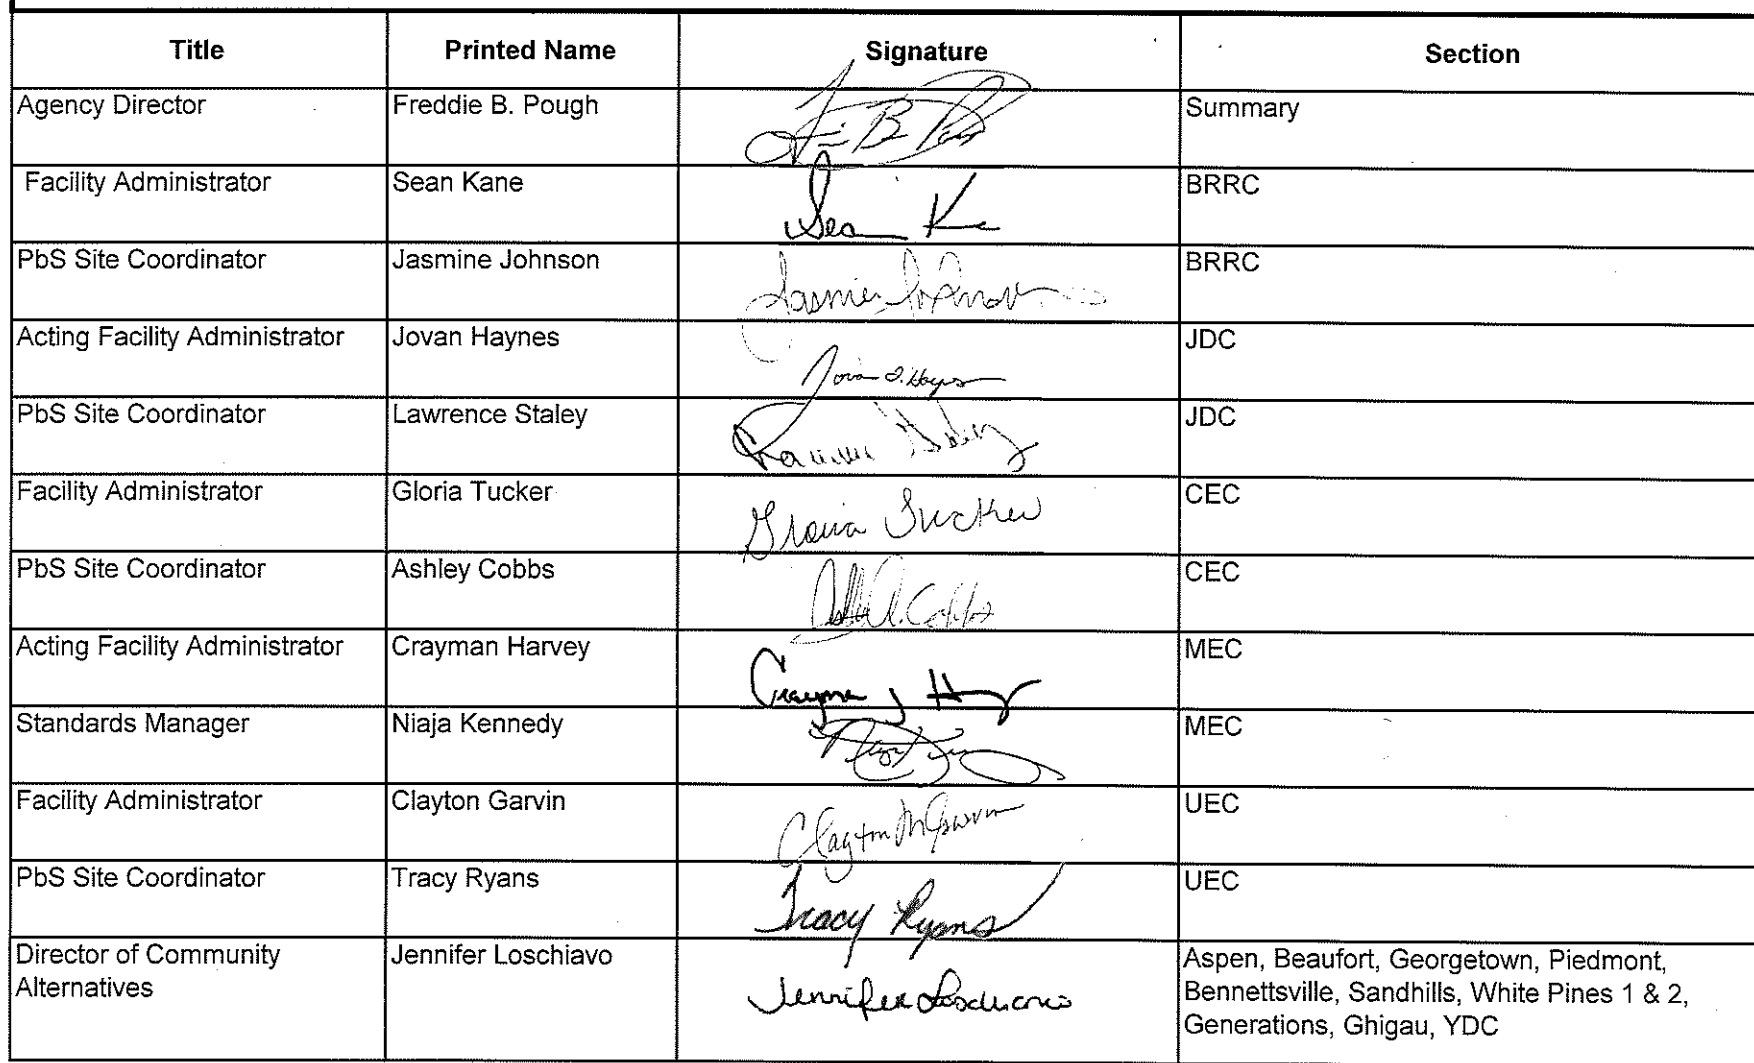 Title Printed Name Signature Section
Agency Director Freddie B. Pough Summary
Facility Administrator Sean Kane Sean K BRRC
PbS Site Coordinator Jasmine Johnson BRRC
Acting Facility Administrator Jovan Haynes JDC
PbS Site Coordinator Lawrence Staley JDC
Facility Administrator Gloria Tucker Gloria Tucker CEC
PbS Site Coordinator Ashley Cobbs CEC
Acting Facility Administrator Crayman Harvey MEC
Standards Manager Niaja Kennedy MEC
Facility Administrator Clayton Garvin Clayton M Garvin UEC
PbS Site Coordinator Tracy Ryans Tracy Ryans UEC
Director of Community Jennifer Loschiavo Jennifer Loschiavo Aspen, Beaufort, Georgetown, Piedmont,
Alternatives Bennettsville, Sandhills, White Pines 1 & 2,
Generations, Ghigau, YDC